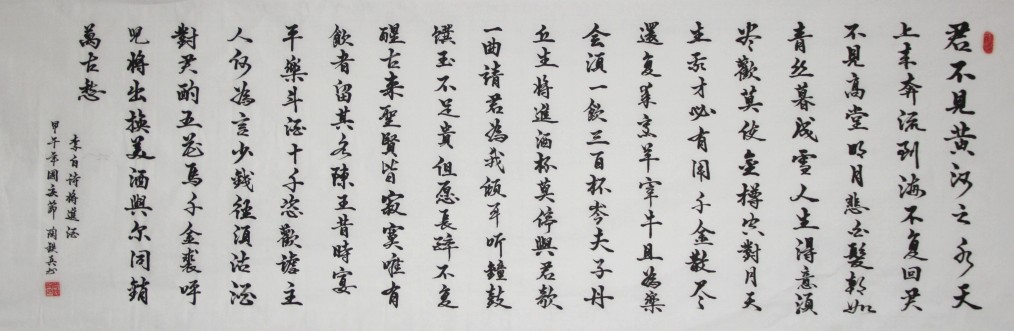 君不見黄河之水天
上来奔流到海不復回君
不見高堂明月悲白髮朝如
青丝暮成雪人生得意須
尽歡莫使金樽空對月天
生我才必有用千金散尽
還复来烹羊宰牛且為樂
会須一飲三百杯岑夫子丹
丘生将進酒杯莫停與君歌
一曲請君為我傾耳听鐘鼓
饌玉不足貴但愿長醉不复
醒古来聖賢皆寂寞唯有
飲者留其名陳王昔時宴
平樂斗酒十千恣歡謔主
人何為言少錢徑須沽酒
對君酌五花馬千金裘呼
児将出换美酒與尔同銷
萬古愁
李白詩将進酒
甲午年國慶節 陶